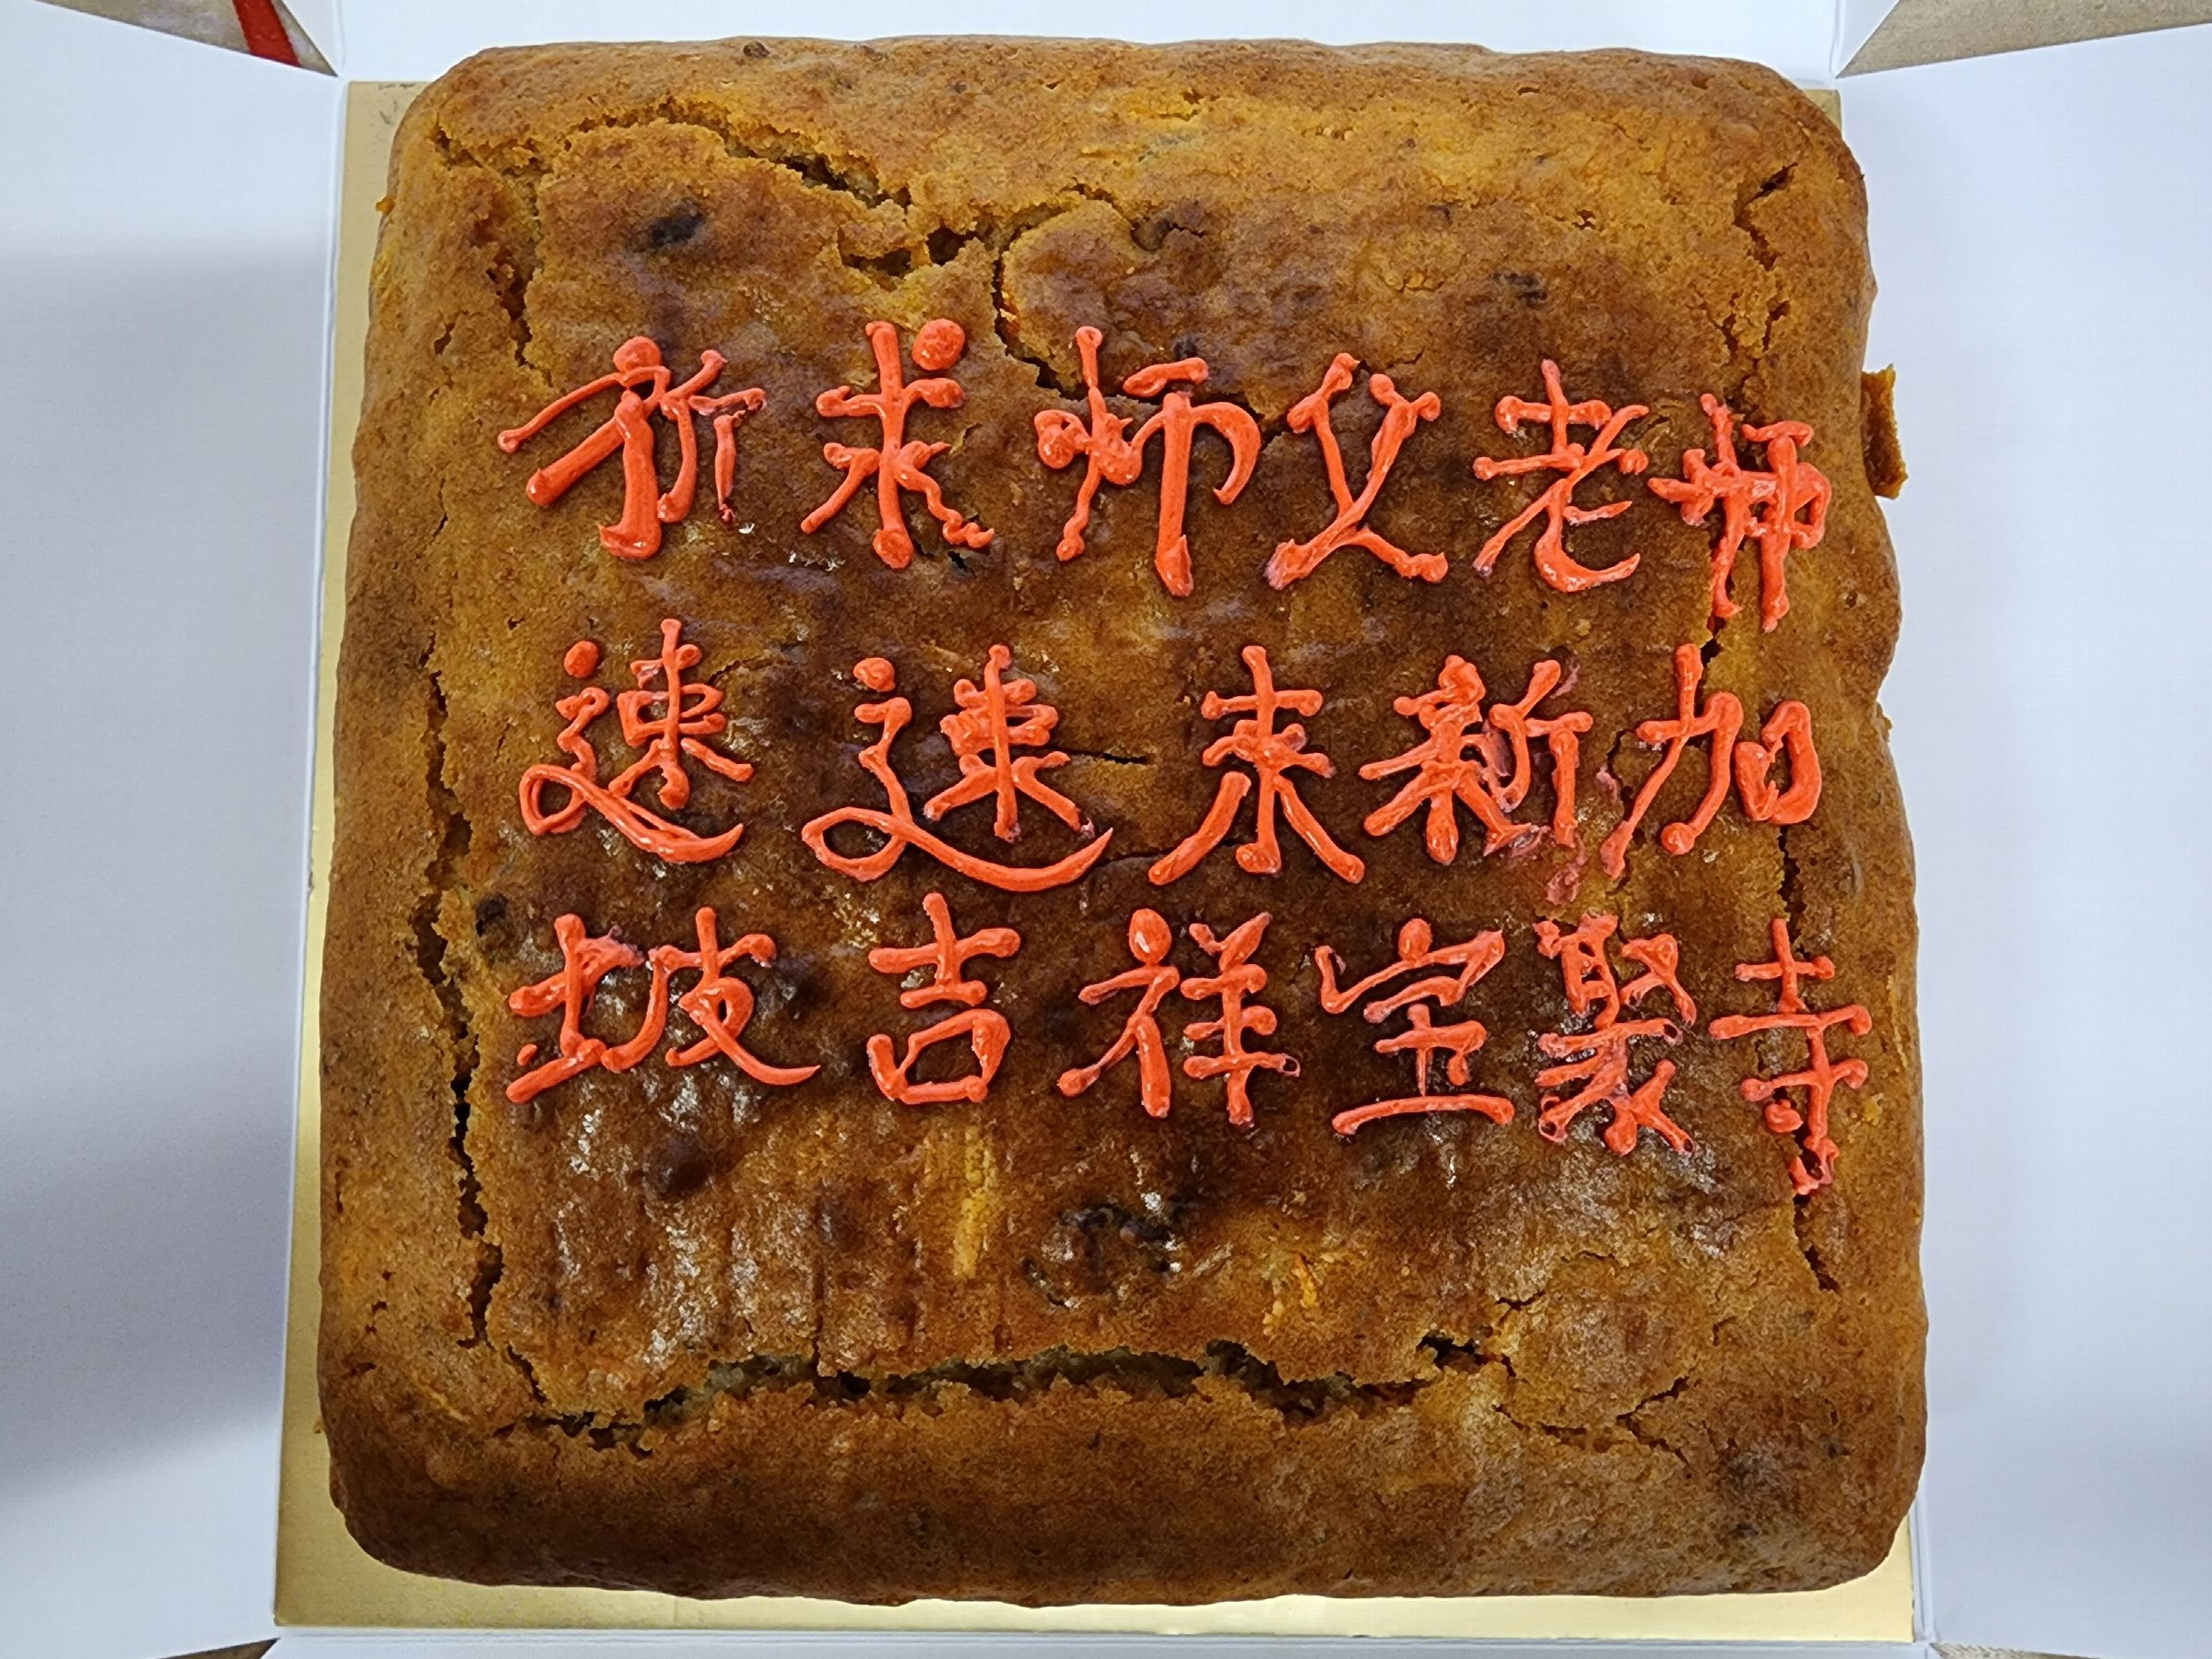 祈求师父老师
速速来新加
坡吉祥宝聚寺